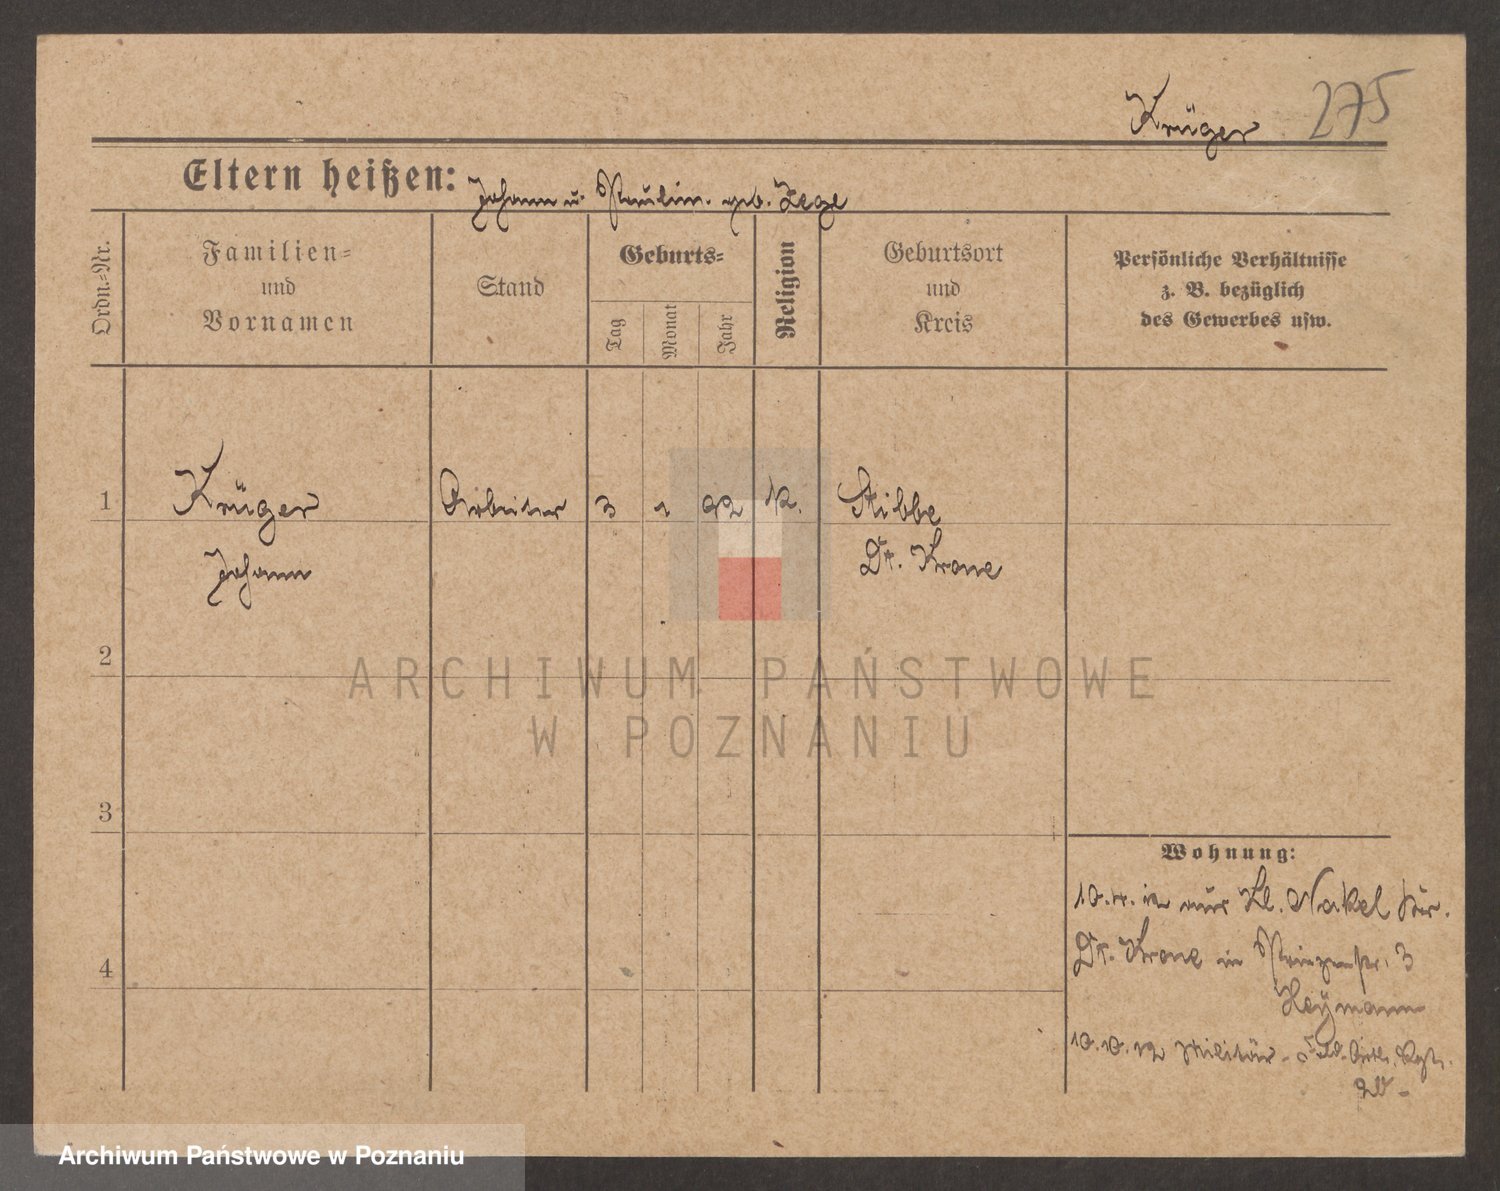 Krüger 275
Eltern heißen: Johann u. Paulin. geb. Zege
Ordn.-Nr.
Familien-
und
Vornamen
Stand
Geburts-
Tag
Monat
Jahr
Religion
Geburtsort
und
Kreis
Persönliche Verhältnisse
z. B. bezüglich
des Gewerbes usw.
1 Krüger Arbeiter 3 1 92 k. Stibbe
Johann Dt. Krone
2
3
4
Wohnung:
10.4.12 aus Kl. Nakel Kr.
Dt. Krone in Prinzenstr. 3
Heymann
10.10.12 Militär - Feld. Artl. Rgt.
20 -
ARCHIWUM PAŃSTWOWE
W POZNANIU
Archiwum Państwowe w Poznaniu